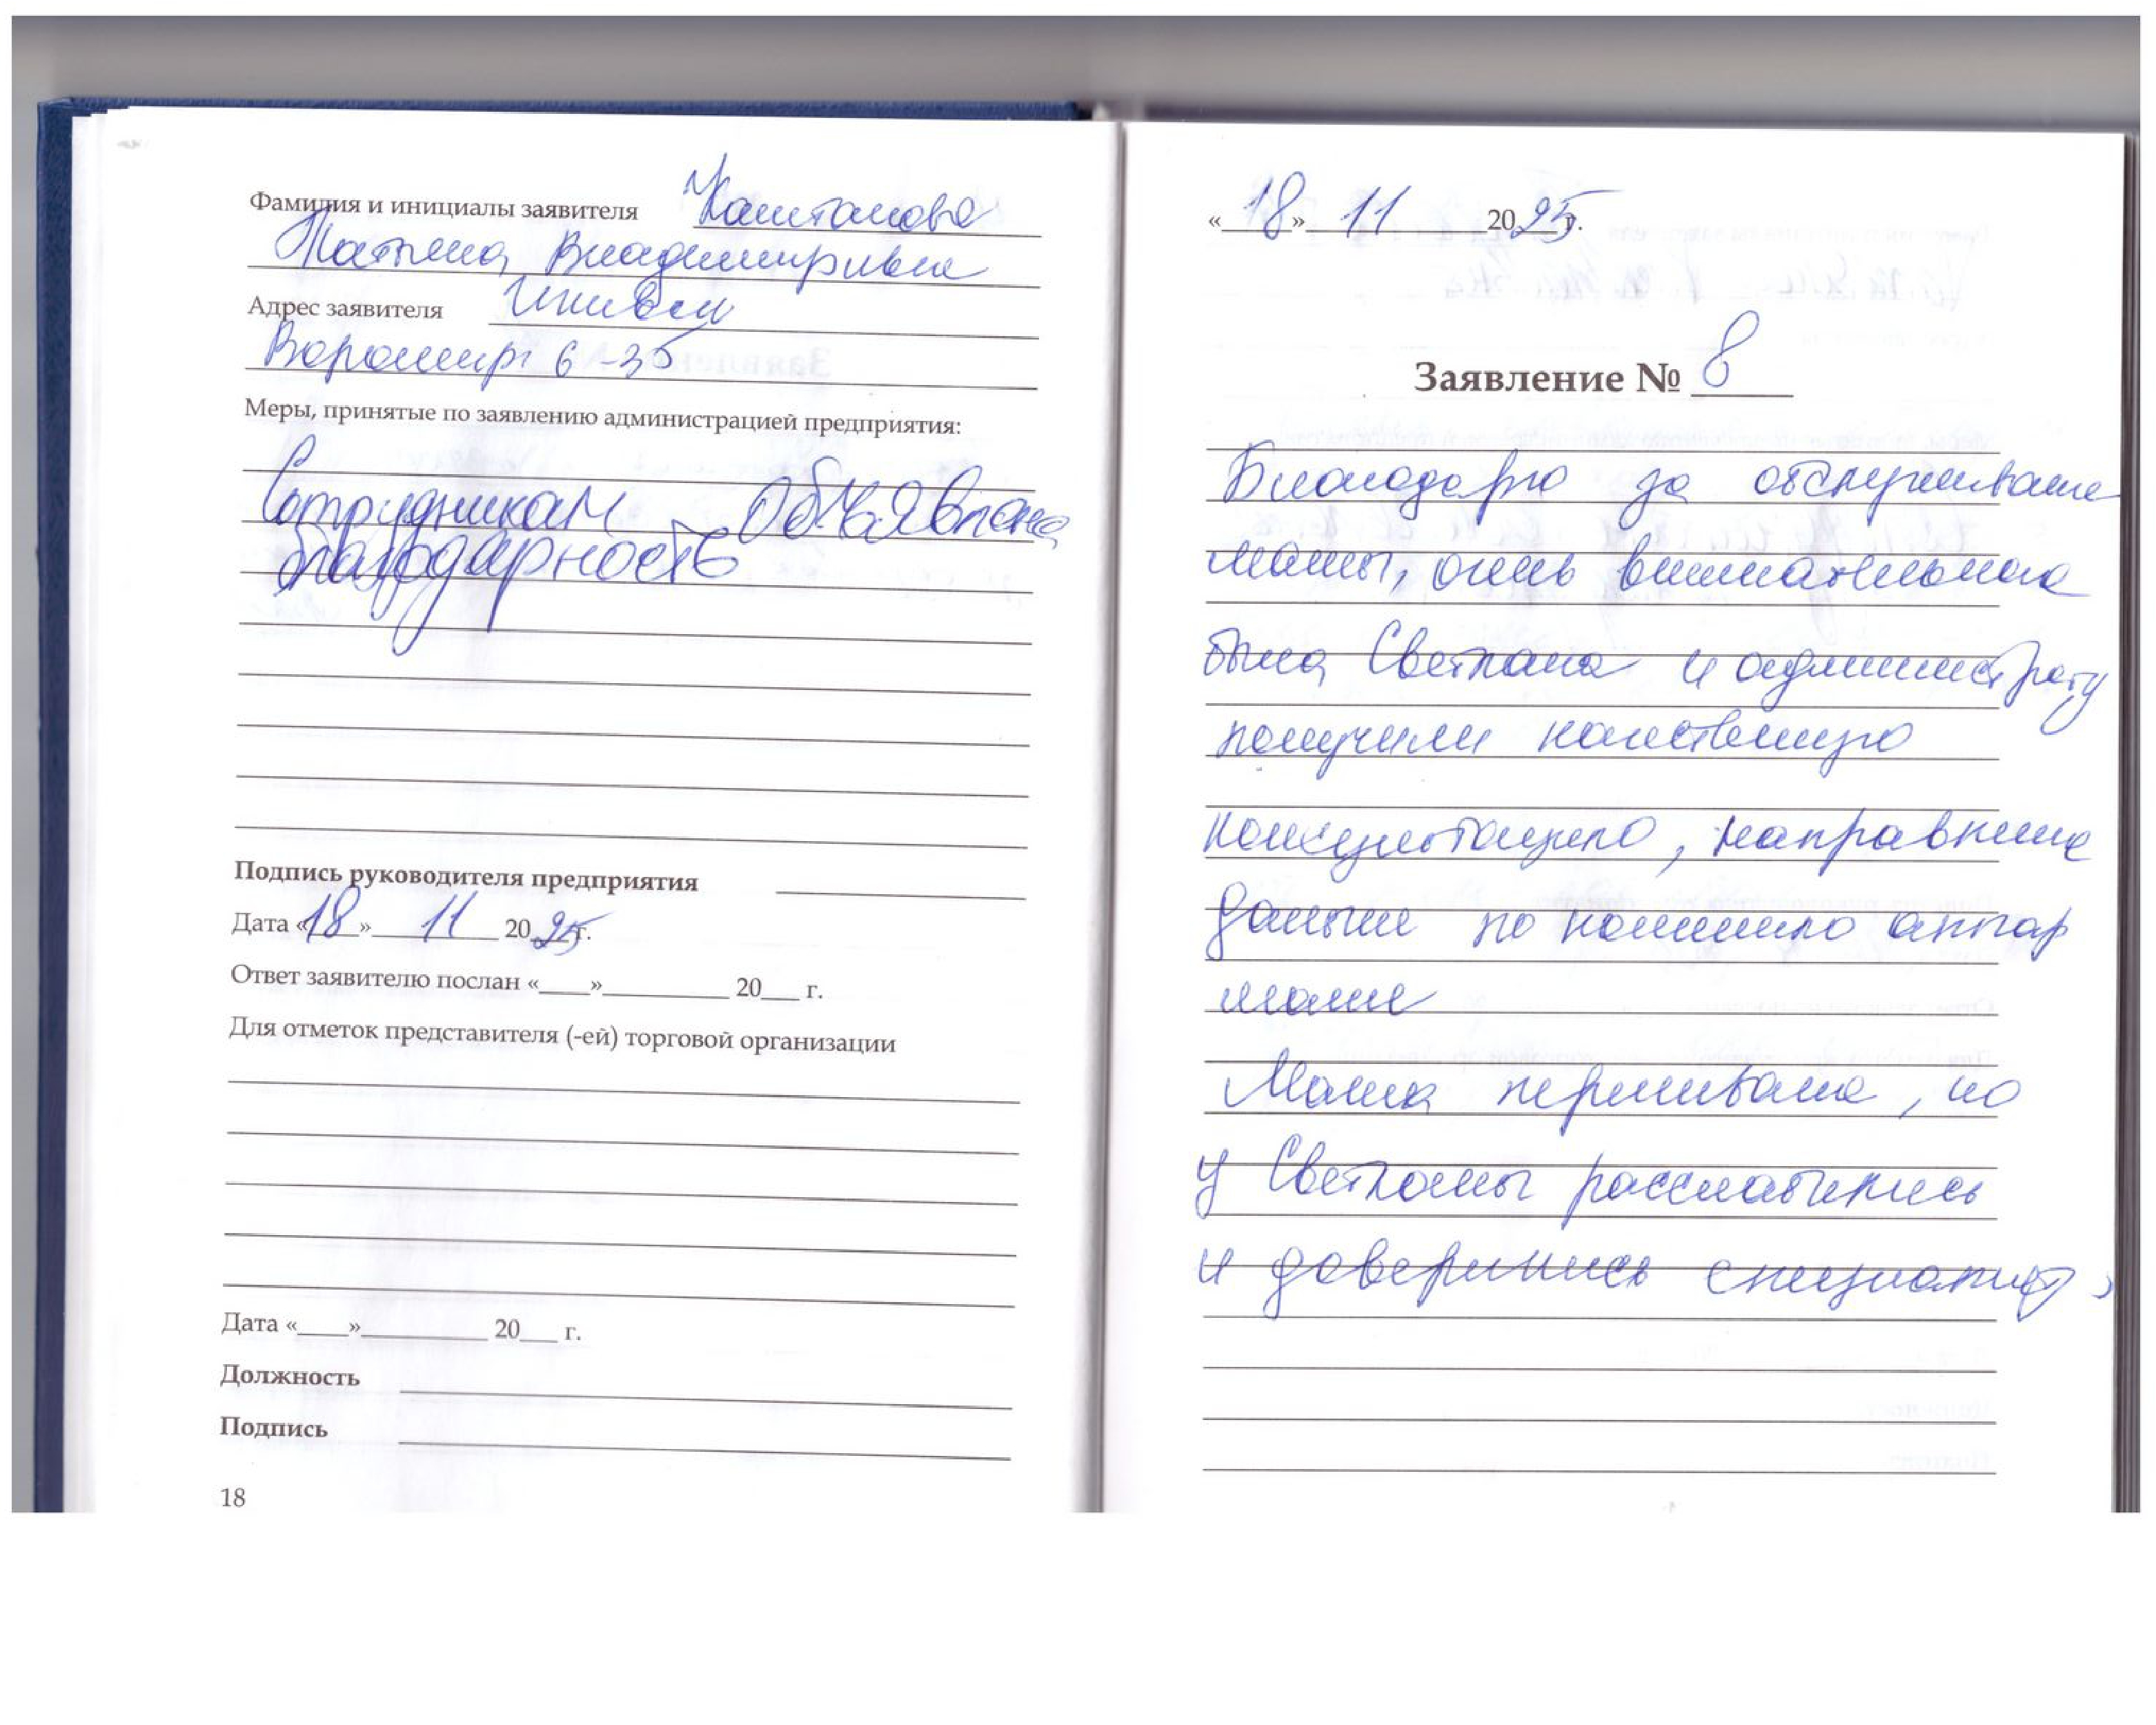 Фамилия и инициалы заявителя Каштанова
Татьяна Владимировна
Адрес заявителя
6-35
Меры, принятые по заявлению администрацией предприятия:
Сотрудникам объявлена
благодарность
Подпись руководителя предприятия
Дата «18» 11 2025 г.
Ответ заявителю послан «____»__________ 20___ г.
Для отметок представителя (-ей) торговой организации
Дата «____»__________ 20___ г.
Должность
Подпись
18
«18» 11 2025 г.
Заявление № 8
Благодарю за обслуживание
мамы, очень внимательна
была Светлана и администрату
получили
консультацию, направление
дальше по
маме
Мама переживала, но
у Светланы расслабились
и доверились специалисту